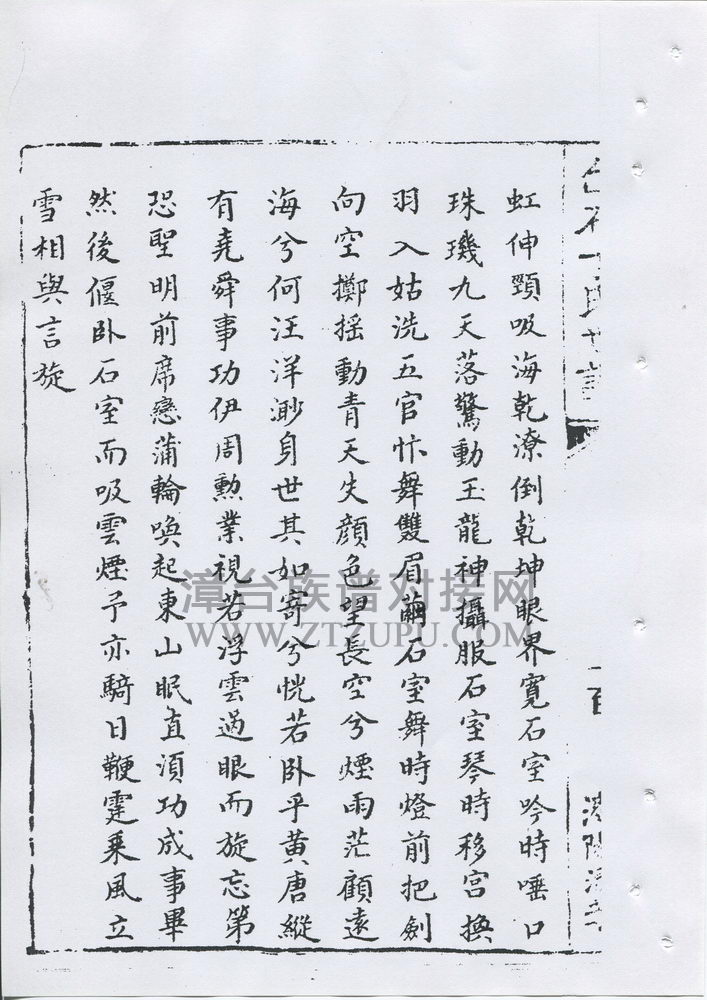 虹伸頸吸海乾潦倒乾坤眼界寬石室吟時唾口
珠璣九天落驚動玉龍神攝服石室琴時移宮換
羽入姑洗五官忭舞雙眉繭石室舞時燈前把劍
向空擲摇動青天失顔色望長空兮煙雨茫顧遠
海兮何汪洋渺身世其如寄兮恍若卧乎黄唐縱
有堯舜事功伊周勲業視若浮雲過眼而旋忘第
恐聖明前席戀蒲輪喚起東山眠直湏功成事畢
然後偃卧石室而吸雲煙予亦騎日鞭霆乘風立
雪相與言旋
漳台族谱对接网
WWW.ZTZUPU.COM